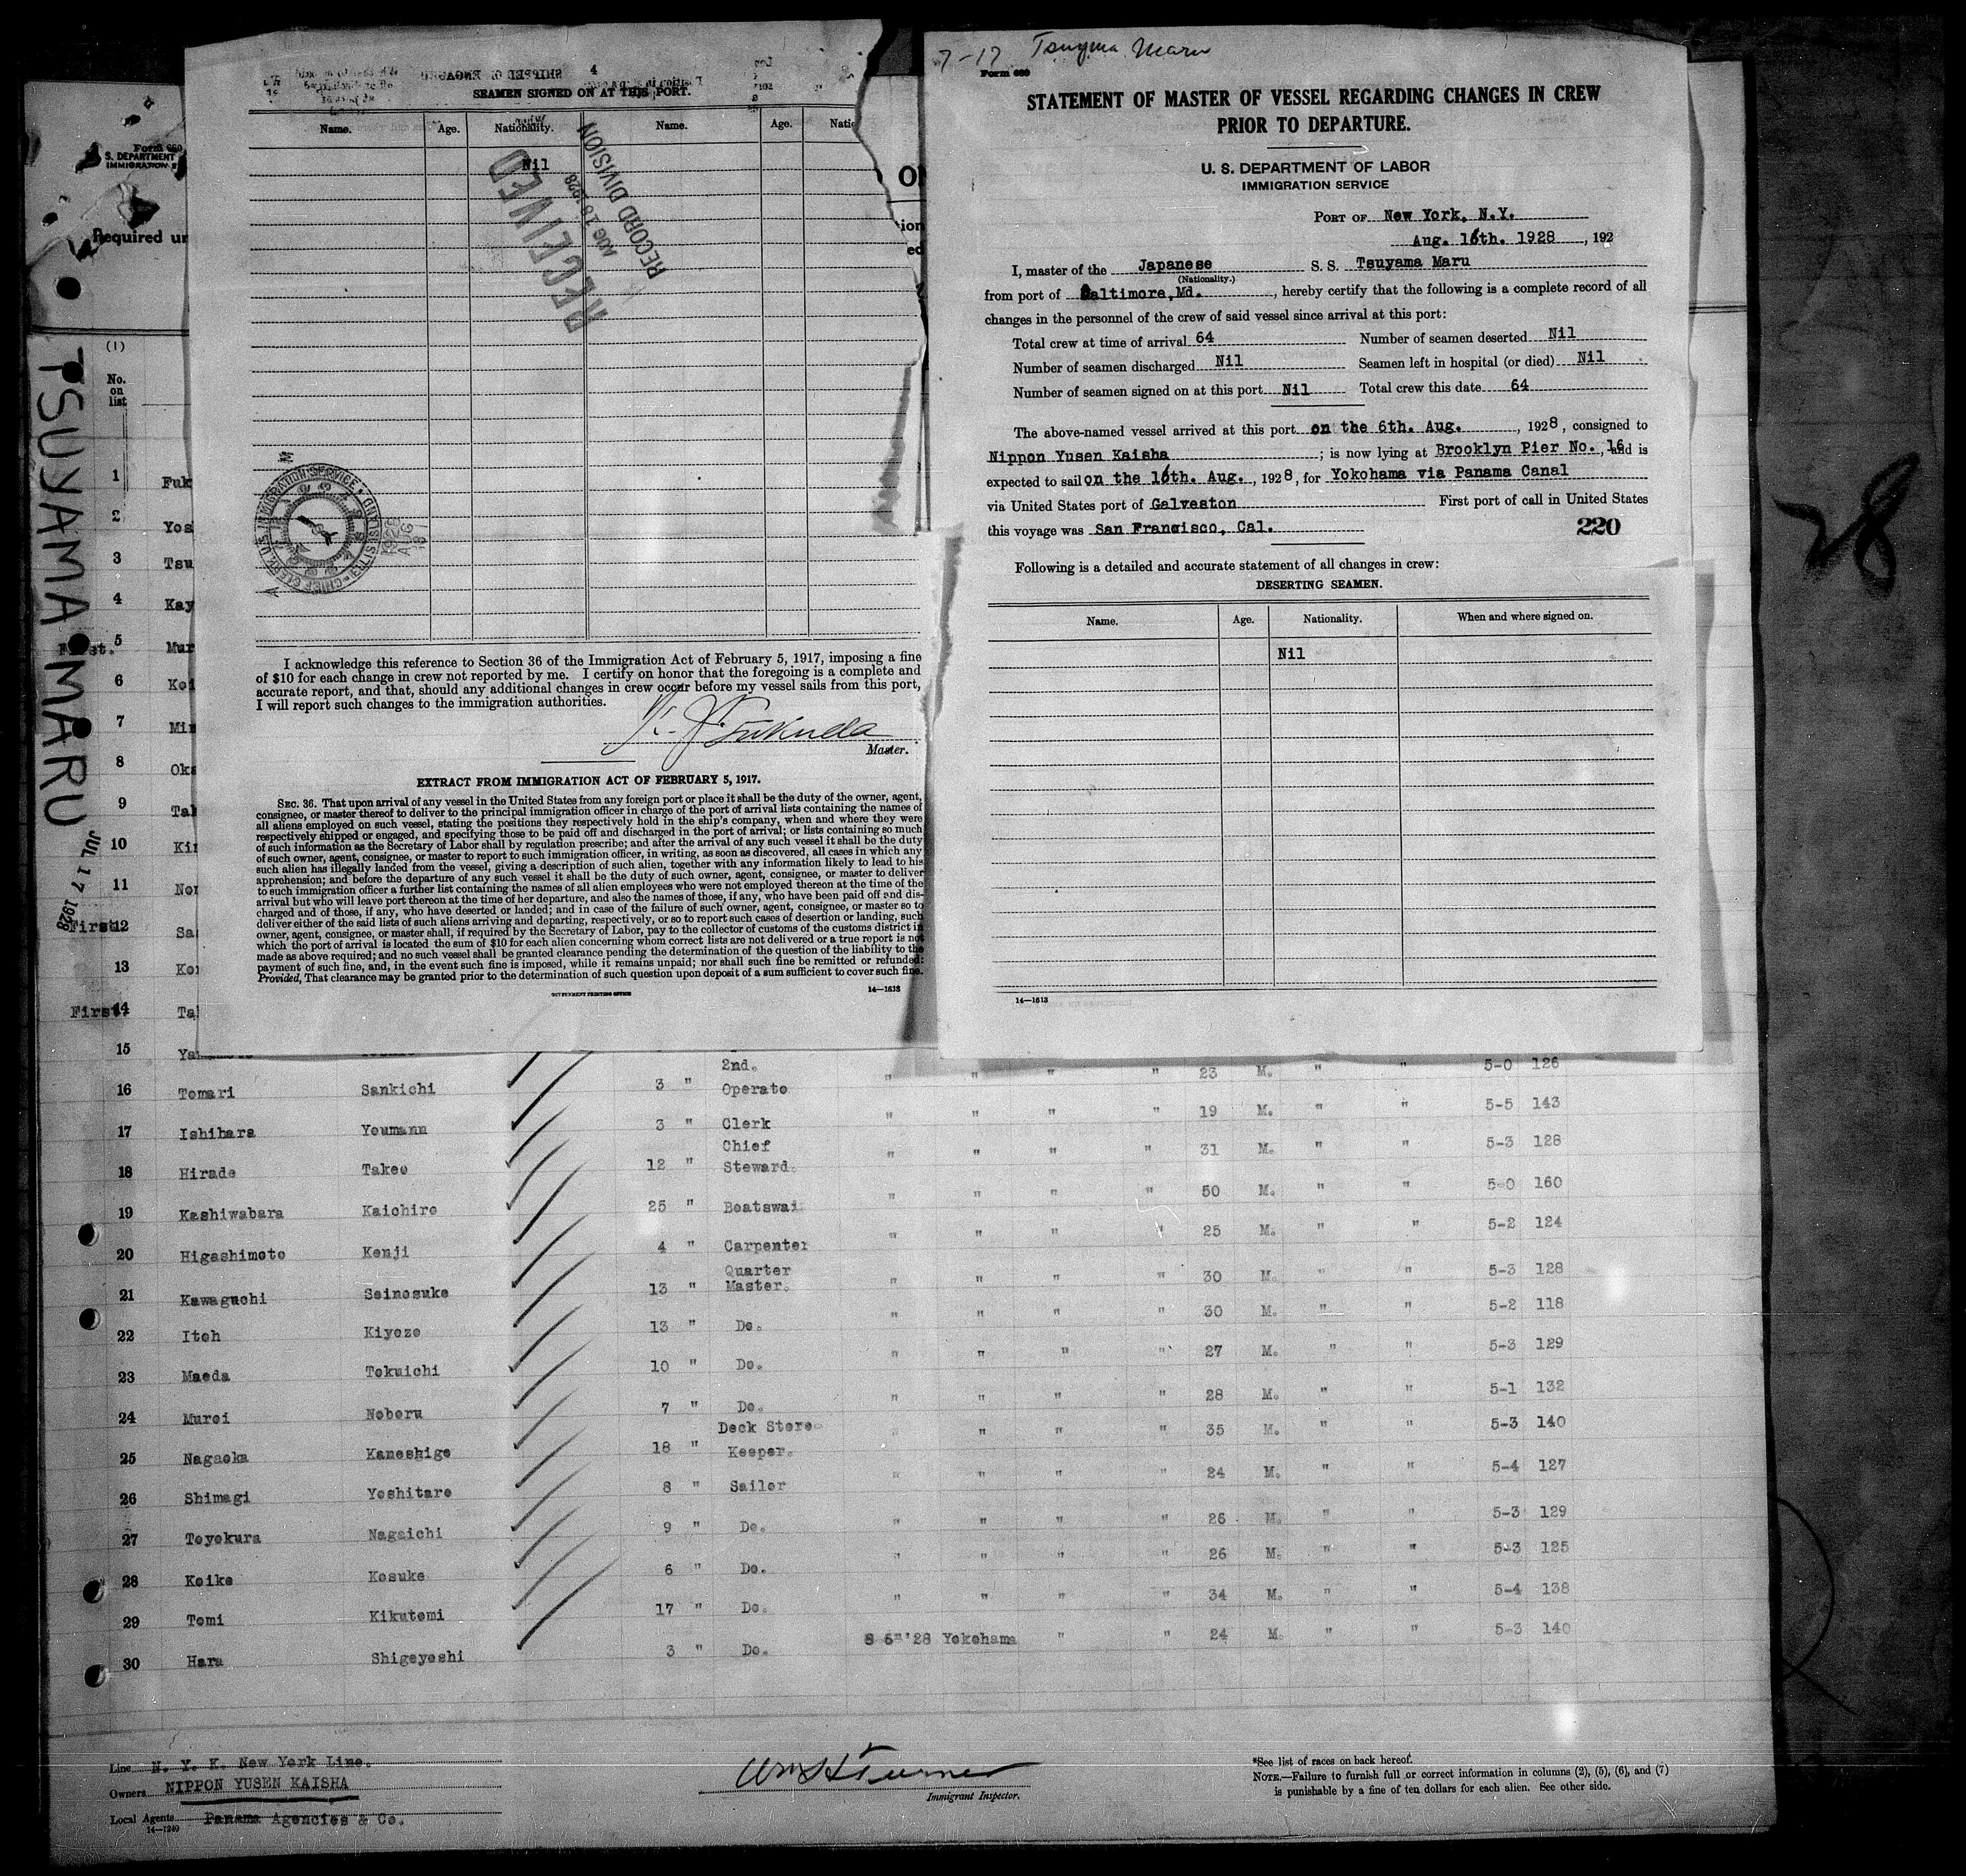 7-17 Tsuyma Maru
Form 689
STATEMENT OF MASTER OF VESSEL REGARDING CHANGES IN CREW
PRIOR TO DEPARTURE.
U. S. DEPARTMENT OF LABOR
IMMIGRATION SERVICE
PORT OF New York, N.Y.
Aug. 16th. 1928, 192
I, master of the Japanese S. S. Tsuyama Maru
(Nationality.)
from port of Baltimore, Md., hereby certify that the following is a complete record of all
changes in the personnel of the crew of said vessel since arrival at this port:
Total crew at time of arrival 64 Number of seamen deserted Nil
Number of seamen discharged Nil Seamen left in hospital (or died) Nil
Number of seamen signed on at this port Nil Total crew this date 64
The above-named vessel arrived at this port on the 6th. Aug., 1928, consigned to
Nippon Yusen Kaisha; is now lying at Brooklyn Pier No. 16, and is
expected to sail on the 16th. Aug., 1928, for Yokohama via Panama Canal
via United States port of Galveston First port of call in United States
this voyage was San Francisco, Cal. 220
Following is a detailed and accurate statement of all changes in crew:
DESERTING SEAMEN.
Name. Age. Nationality. When and where signed on.
Nil
14—1613
4
SEAMEN SIGNED ON AT THIS PORT.
Name. Age. Nationality. Name. Age. Natio
Nil
RECEIVED
AUG 18 1928
RECORD DIVISION
1928
AUG
18
I acknowledge this reference to Section 36 of the Immigration Act of February 5, 1917, imposing a fine
of $10 for each change in crew not reported by me. I certify on honor that the foregoing is a complete and
accurate report, and that, should any additional changes in crew occur before my vessel sails from this port,
I will report such changes to the immigration authorities.
Master.
EXTRACT FROM IMMIGRATION ACT OF FEBRUARY 5, 1917.
SEC. 36. That upon arrival of any vessel in the United States from any foreign port or place it shall be the duty of the owner, agent,
consignee, or master thereof to deliver to the principal immigration officer in charge of the port of arrival lists containing the names of
all aliens employed on such vessel, stating the positions they respectively hold in the ship's company, when and where they were
respectively shipped or engaged, and specifying those to be paid off and discharged in the port of arrival; or lists containing so much
of such information as the Secretary of Labor shall by regulation prescribe; and after the arrival of any such vessel it shall be the duty
of such owner, agent, consignee, or master to report to such immigration officer, in writing, as soon as discovered, all cases in which any
such alien has illegally landed from the vessel, giving a description of such alien, together with any information likely to lead to his
apprehension; and before the departure of any such vessel it shall be the duty of such owner, agent, consignee, or master to deliver
to such immigration officer a further list containing the names of all alien employees who were not employed thereon at the time of the
arrival but who will leave port thereon at the time of her departure, and also the names of those, if any, who have been paid off and dis-
charged and of those, if any, who have deserted or landed; and in case of the failure of such owner, agent, consignee, or master so to
deliver either of the said lists of such aliens arriving and departing, respectively, or so to report such cases of desertion or landing, such
owner, agent, consignee, or master shall, if required by the Secretary of Labor, pay to the collector of customs of the customs district in
which the port of arrival is located the sum of $10 for each alien concerning whom correct lists are not delivered or a true report is not
made as above required; and no such vessel shall be granted clearance pending the determination of the question of the liability to the
payment of such fine, and, in the event such fine is imposed, while it remains unpaid; nor shall such fine be remitted or refunded:
Provided, That clearance may be granted prior to the determination of such question upon deposit of a sum sufficient to cover such fine.
GOVERNMENT PRINTING OFFICE 14—1613
Form 680
S. DEPARTMENT
IMMIGRATION S
Required un
TSUYAMA MARU
JUL 17 1928
28
(1)
No.
on
list
1 Fuk
2 Yos
3 Tsu
4 Kay
5 Mur
6 Koi
7 Min
8 Oka
9 Tak
10 Kin
11 Nor
First 12 Sa
13 Kor
First 14 Ta
15
16 Tomari Sankichi 3 " 2nd. Operato " " " " 23 M. " " 5-0 126
17 Ishihara Youmann 3 " Clerk " " " " 19 M. " " 5-5 143
18 Hirade Takeo 12 " Chief Steward. " " " " 31 M. " " 5-3 128
19 Kashiwabara Kaichiro 25 " Boatswai " " " " 50 M. " " 5-0 160
20 Higashimoto Kenji 4 " Carpenter " " " " 25 M. " " 5-2 124
21 Kawaguchi Seinosuke 13 " Quarter Master. " " " " 30 M. " " 5-3 128
22 Itoh Kiyozo 13 " Do. " " " " 30 M. " " 5-2 118
23 Maeda Tokuichi 10 " Do. " " " " 27 M. " " 5-3 129
24 Muroi Noboru 7 " Do. " " " " 28 M. " " 5-1 132
25 Nagaoka Kaneshige 18 " Deck Store Keeper. " " " " 35 M. " " 5-3 140
26 Shimagi Yoshitaro 8 " Sailor " " " " 24 M. " " 5-4 127
27 Toyokura Nagaichi 9 " Do. " " " " 26 M. " " 5-3 129
28 Koike Kosuke 6 " Do. " " " " 26 M. " " 5-3 125
29 Tomi Kikutomi 17 " Do. " " " " 34 M. " " 5-4 138
30 Hara Shigeyoshi 3 " Do. '28 Yokohama " " 24 M. " " 5-3 140
Line N. Y. K. New York Line.
Owners NIPPON YUSEN KAISHA
Local Agents Panama Agencies & Co.
14—1240
Wm H Turner
Immigrant Inspector.
*See list of races on back hereof.
NOTE.—Failure to furnish full or correct information in columns (2), (5), (6), and (7)
is punishable by a fine of ten dollars for each alien. See other side.